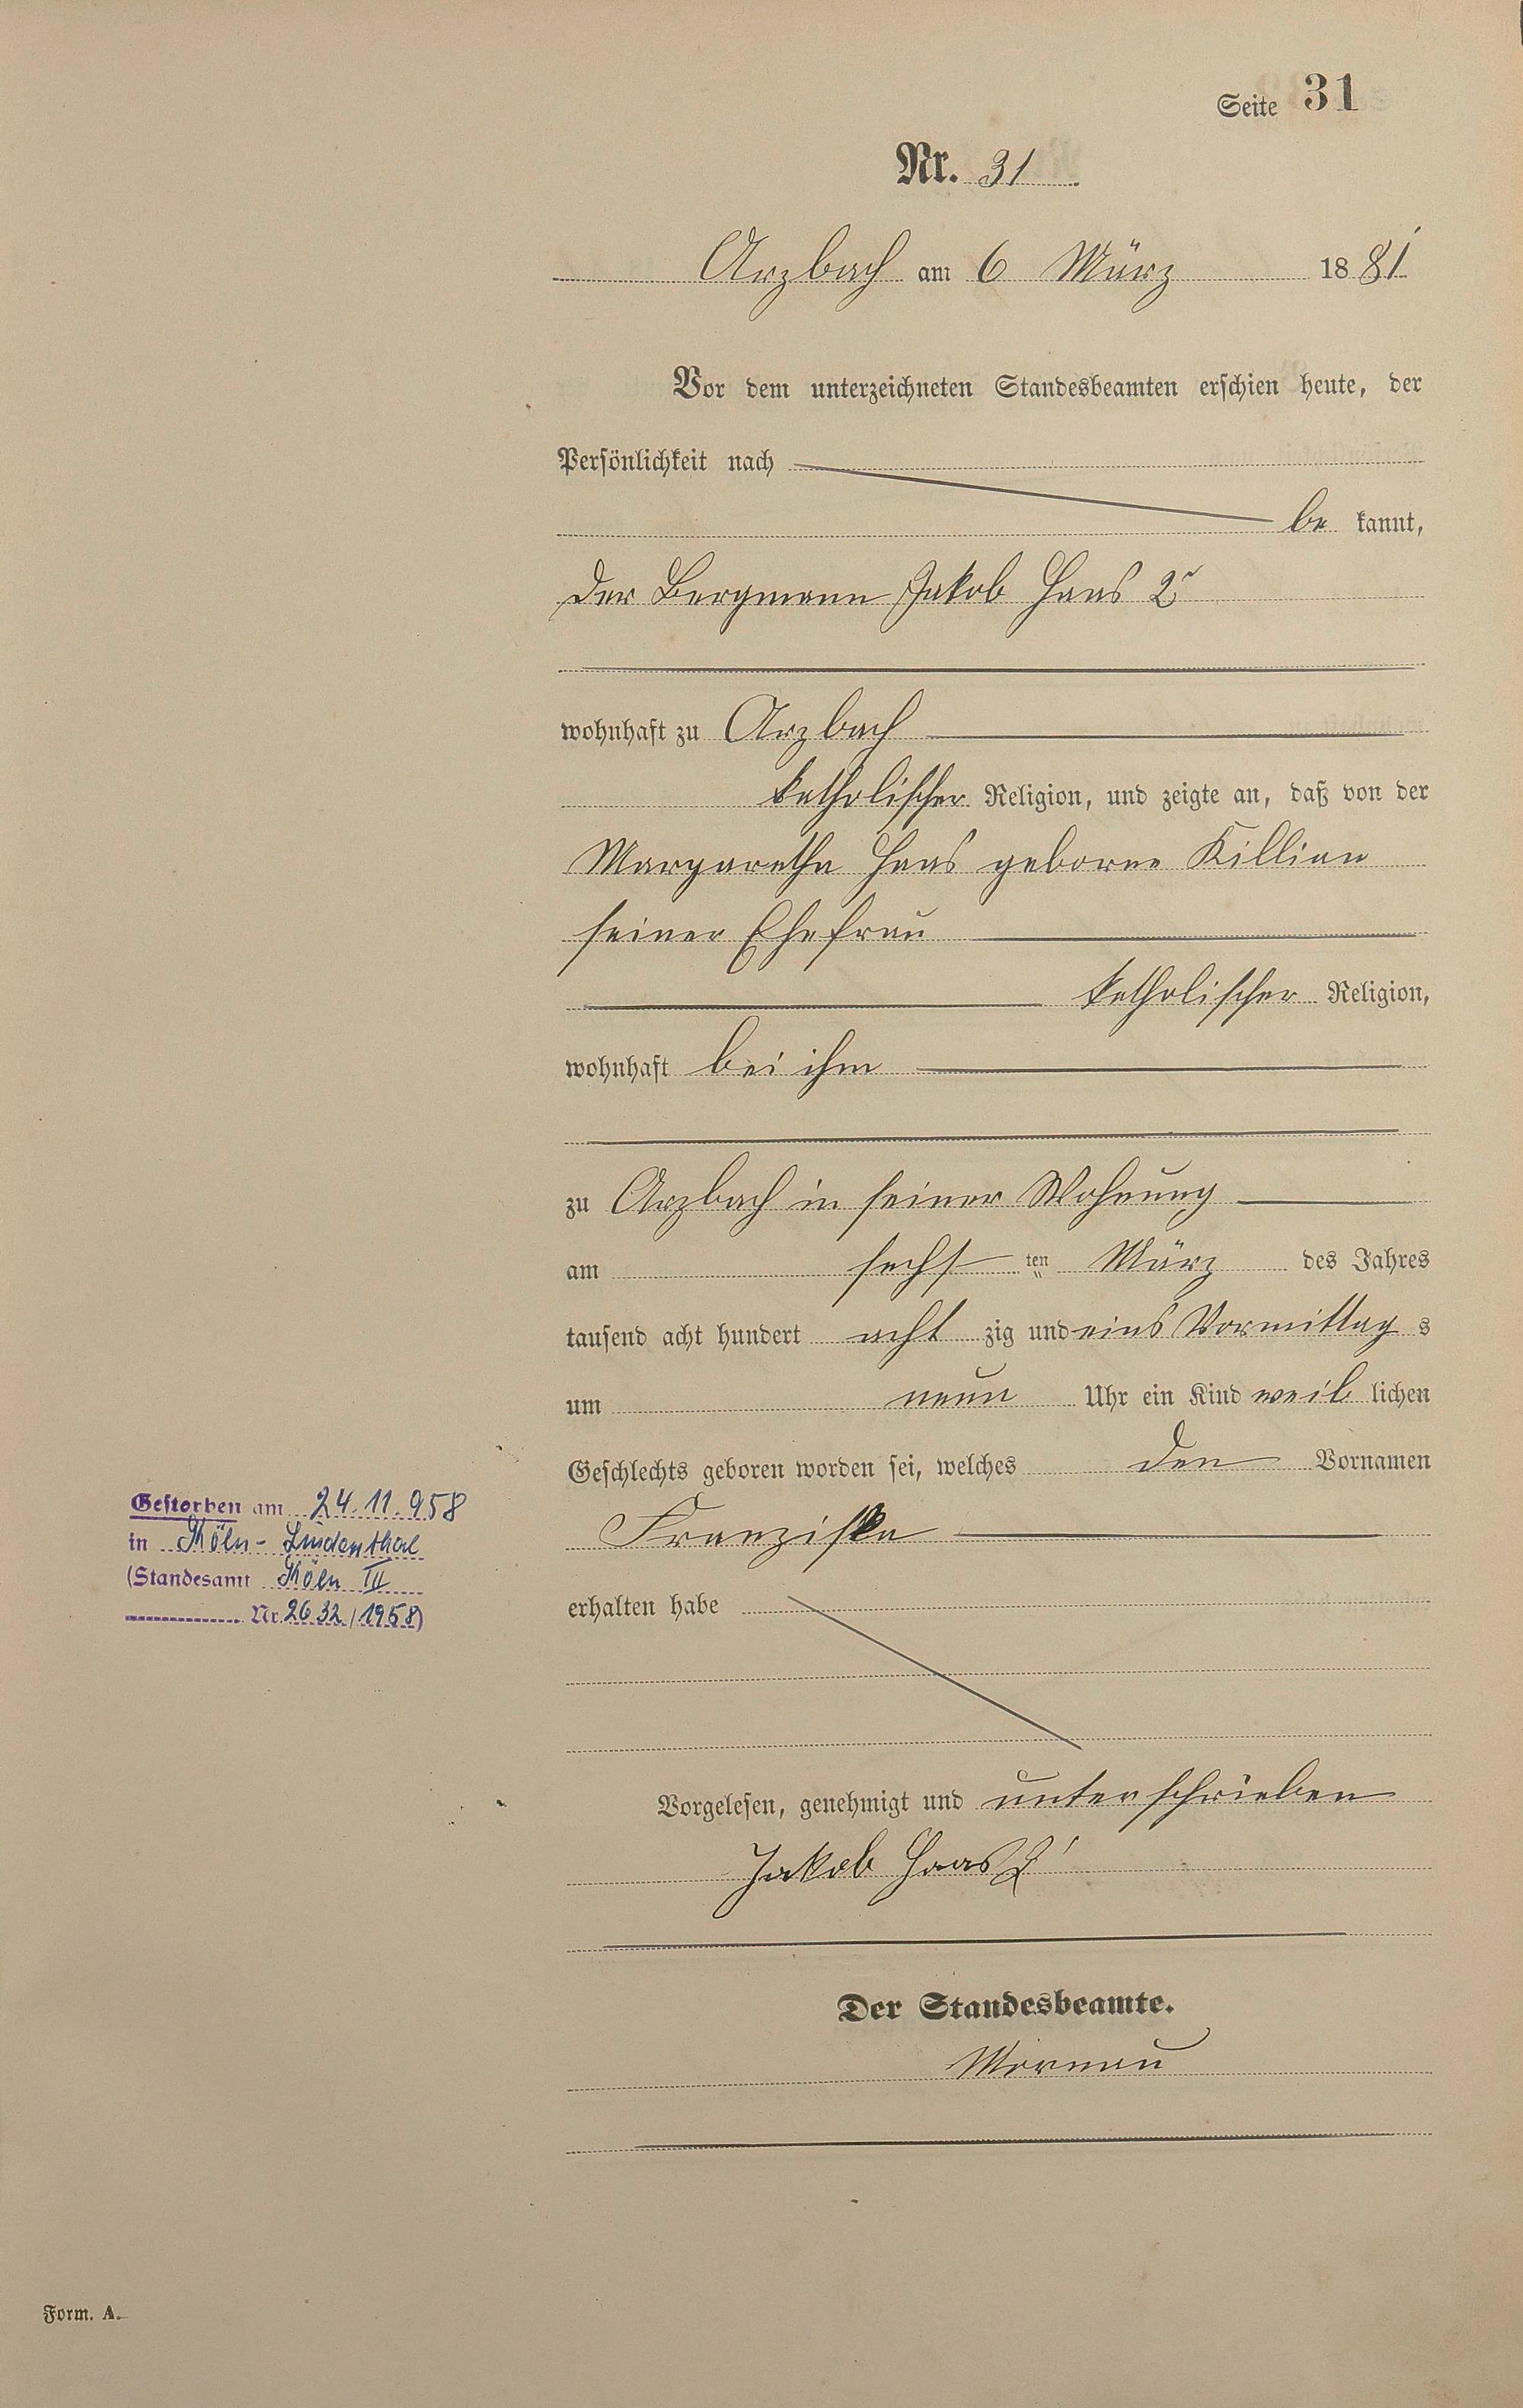 Seite 31
Nr. 31
Arzbach am 6 März 1881
Vor dem unterzeichneten Standesbeamten erschien heute, der
Persönlichkeit nach
be kannt,
der Bergmann Jakob Haas 2r
wohnhaft zu Arzbach
katholischer Religion, und zeigte an, daß von der
Margaretha Haas geborne Killian
seiner Ehefrau
katholischer Religion,
wohnhaft bei ihm
zu Arzbach in seiner Wohnung
am sechsten März des Jahres
tausend acht hundert acht zig und eins Vormittag s
um neun Uhr ein Kind weiblichen
Geschlechts geboren worden sei, welches den Vornamen
Franziska
erhalten habe
Gestorben am 24.11.958
in Köln-Lindenthal
(Standesamt Köln III
Nr. 2632/1958)
Vorgelesen, genehmigt und unterschrieben
Jakob Haas 2r
Der Standesbeamte.
Form. A.